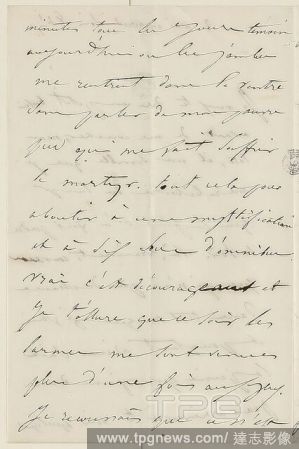 minutes
aujourd'hui où les jambes
me rentrent dans le ventre
sans parler de mon pauvre
qui me fait souffrir
le martyr. tout cela pour
aboutir à une mystification
et à d'omnibus
vrai c'est décourageant et
Je t'assure que ce soir les
larmes me sont venues
plus d'une fois aux yeux.
Je reconnais que ce n'est
TPG
TPG NEWS
www.tpgnews.com / 達志影像